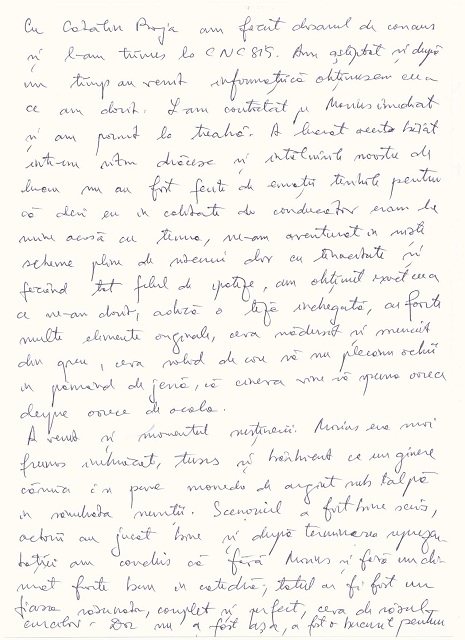 Cu Catalin Baja am facut dosarul de concurs
și l-am trimes la CNCSIS. Am așteptat și după
un timp au venit informatică obținusem ceea
ce am dorit. L-am contactat pe Marius imediat
și am pornit la treabă. A lucrat acesta băiat
într-un ritm drăcesc și întâlnirile noastre de
lucru nu au fost ferite de emoții teribile pentru
că deși eu în calitate de conducător eram la
mine acasă cu tema, ne-am aventurat în niște
scheme pline de riscuri dar cu tenacitate și
făcând tot felul de ipoteze, am obținut exact ceea
ce ne-am dorit, adică o teză închegată, cu foarte
multe elemente originale, ceva nădușit și muncit
din greu, ceva solid de care să nu plecăm ochii
în pământ de jenă, că cineva vine să spună orice
despre orice de acolo.
A venit și momentul susținerii. Marius era mai
frumos îmbrăcat, tuns și bărbierit ca un ginere
căruia i se pune moneda de argint sub talpă
în sâmbăta nunții. Scenariul a fost bine scris,
actorii au jucat bine și după terminarea reprezen
tației am conchis că fără Marius și fără un ali
mat foarte bun în catedră, totul ar fi fost un
fiasco răsunător, complet și perfect, ceva de râsul
curcilor. Dar nu a fost așa, a fost o bucurie pentru